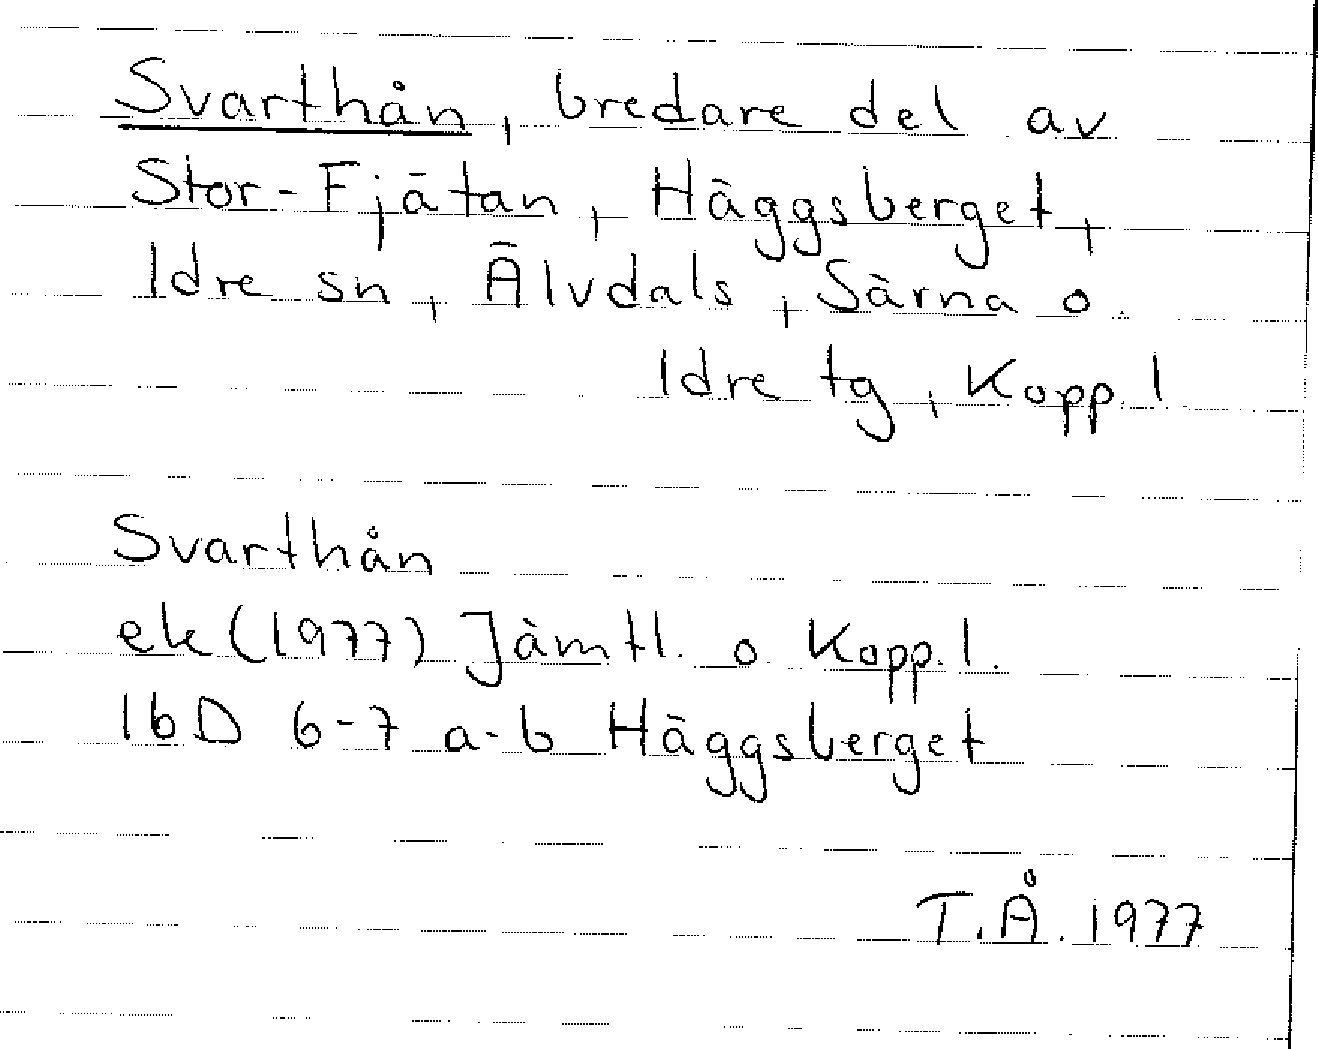 Svarthån, bredare del av
Stor-Fjätan, Häggsberget,
Idre sn, Älvdals, Särna o.
Idre tg, Kopp. l
Svarthån
ek (1977) Jämtl. o Kopp. l.
16D 6-7 a-b Häggsberget
T.Å. 1977